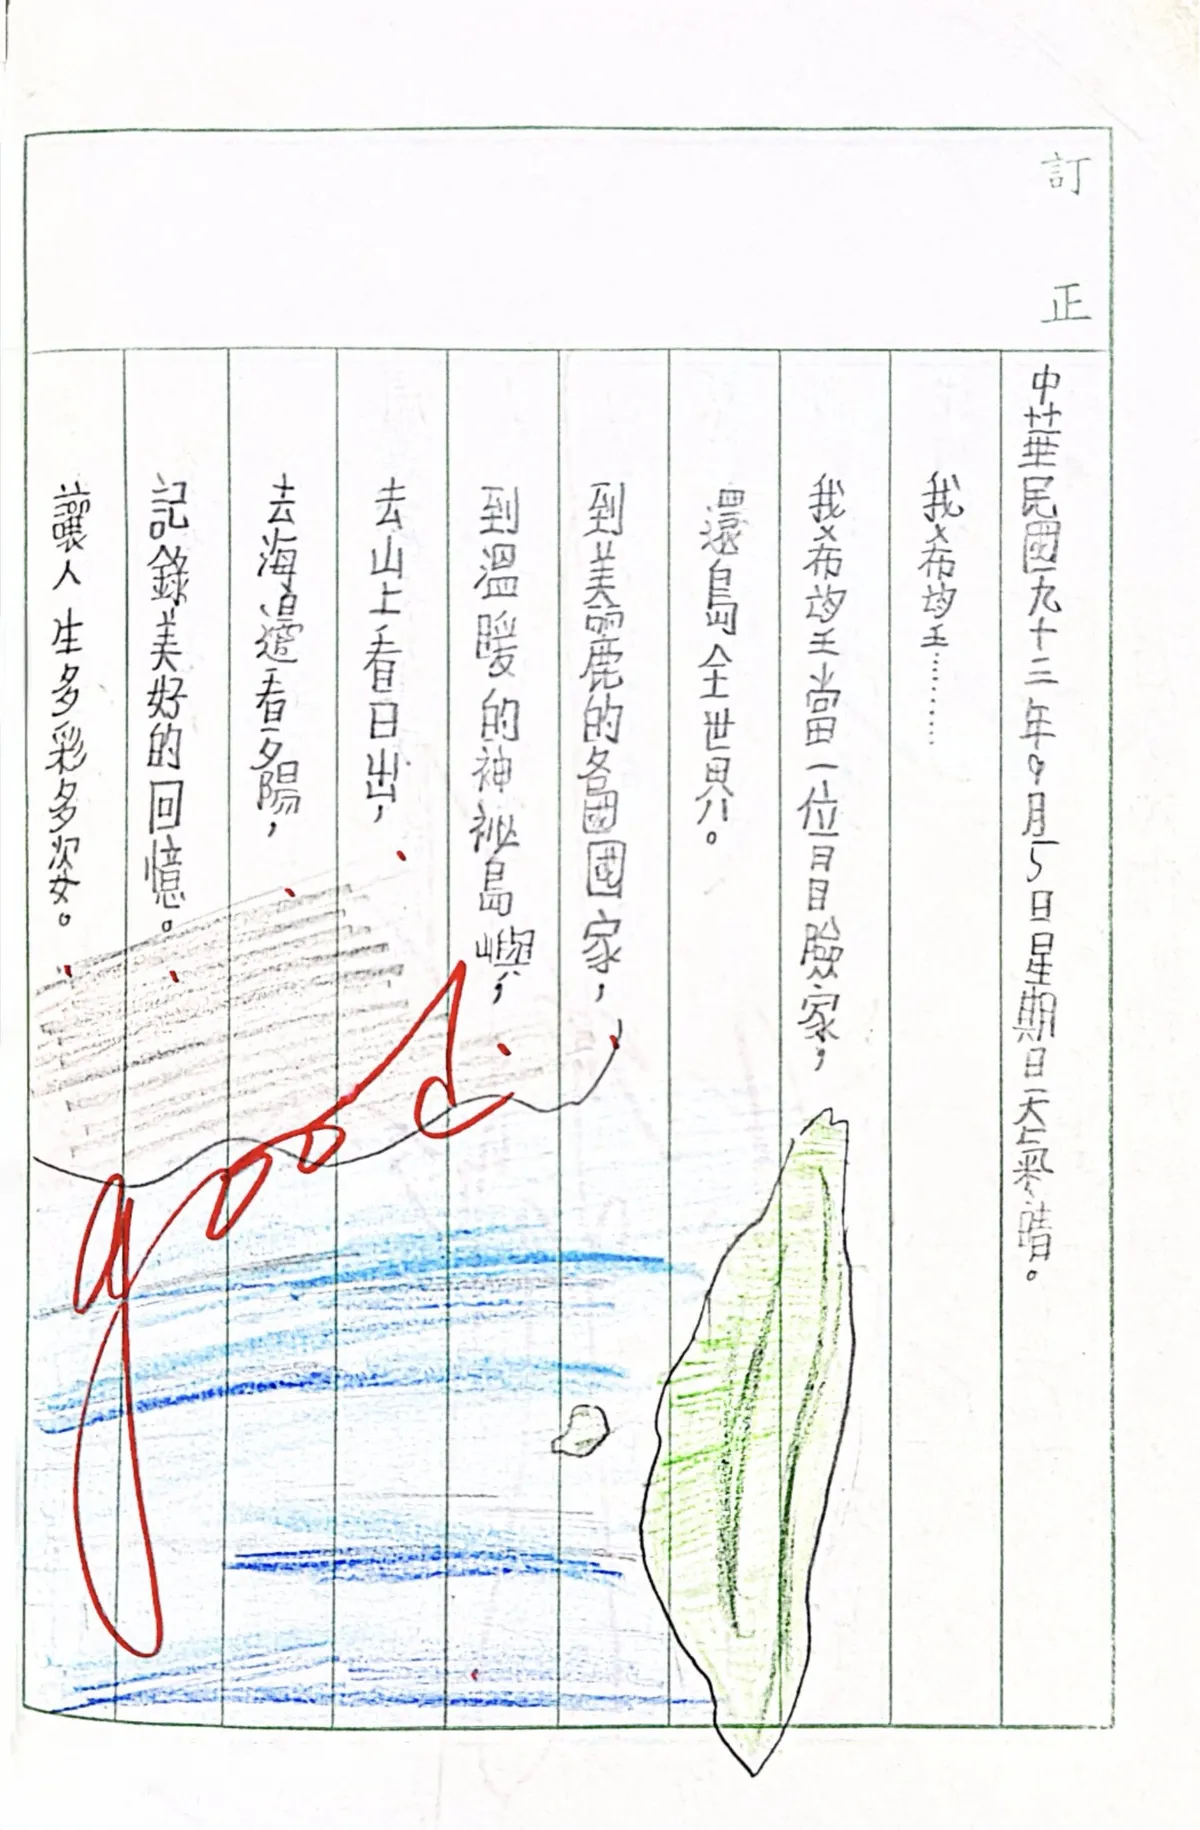 訂正
中華民國九十三年9月5日星期日天氣晴。
我希望………
我希望當一位冒險家，
還島全世界。
到美麗的各國國家，
到溫暖的神祕島嶼，
去山上看日出，
去海邊看夕陽，
記錄美好的回憶。
讓人生多彩多姿。
good